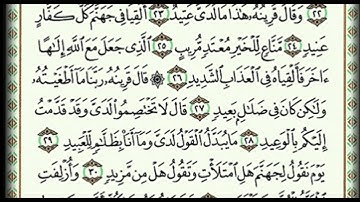 ٢٢ وَقَالَ قَرِينُهُۥ هَٰذَا مَا لَدَىَّ عَتِيدٌ ٢٣ أَلْقِيَا فِى جَهَنَّمَ كُلَّ كَفَّارٍ
عَنِيدٍ ٢٤ مَّنَّاعٍ لِّلْخَيْرِ مُعْتَدٍ مُّرِيبٍ ٢٥ ٱلَّذِى جَعَلَ مَعَ ٱللَّهِ إِلَٰهًا
ءَاخَرَ فَأَلْقِيَاهُ فِى ٱلْعَذَابِ ٱلشَّدِيدِ ٢٦ ۞ قَالَ قَرِينُهُۥ رَبَّنَا مَآ أَطْغَيْتُهُۥ
وَلَٰكِن كَانَ فِى ضَلَٰلٍۭ بَعِيدٍ ٢٧ قَالَ لَا تَخْتَصِمُوا۟ لَدَىَّ وَقَدْ قَدَّمْتُ
إِلَيْكُم بِٱلْوَعِيدِ ٢٨ مَا يُبَدَّلُ ٱلْقَوْلُ لَدَىَّ وَمَآ أَنَا۠ بِظَلَّٰمٍ لِّلْعَبِيدِ ٢٩
يَوْمَ نَقُولُ لِجَهَنَّمَ هَلِ ٱمْتَلَأْتِ وَتَقُولُ هَلْ مِن مَّزِيدٍ ٣٠ وَأُزْلِفَتِ